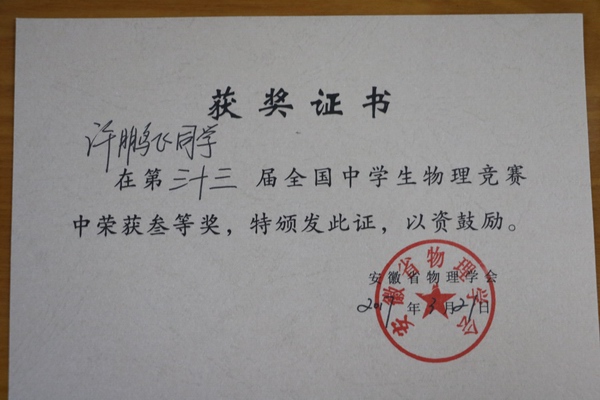 获奖证书
许鹏飞同学
在第三十三届全国中学生物理竞赛
中荣获叁等奖，特颁发此证，以资鼓励。
安徽省物理学会
年3月21日
安徽省物理学会